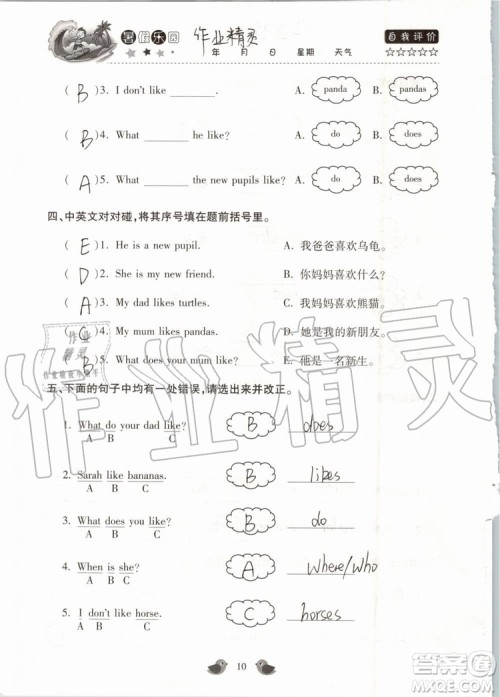 暑假乐园 作业精灵 自我评价
年 月 日 星期 天气 ☆☆☆☆☆
( B )3. I don't like ________. A. panda B. pandas
( B )4. What ________ he like? A. do B. does
( A )5. What ________ the new pupils like? A. do B. does
四、中英文对对碰,将其序号填在题前括号里。
( E )1. He is a new pupil. A. 我爸爸喜欢乌龟。
( D )2. She is my new friend. B. 你妈妈喜欢什么?
( A )3. My dad likes turtles. C. 我妈妈喜欢熊猫。
( C )4. My mum likes pandas. D. 她是我的新朋友。
( B )5. What does your mum like? E. 他是一名新生。
五、下面的句子中均有一处错误,请选出来并改正。
1. What do your dad like? B does
A B C
2. Sarah like bananas. B likes
A B C
3. What does you like? B do
A B C
4. When is she? A where/who
A B C
5. I don't like horse. C horses
A B C
10
作业精灵
答案圈
MXQE.COM